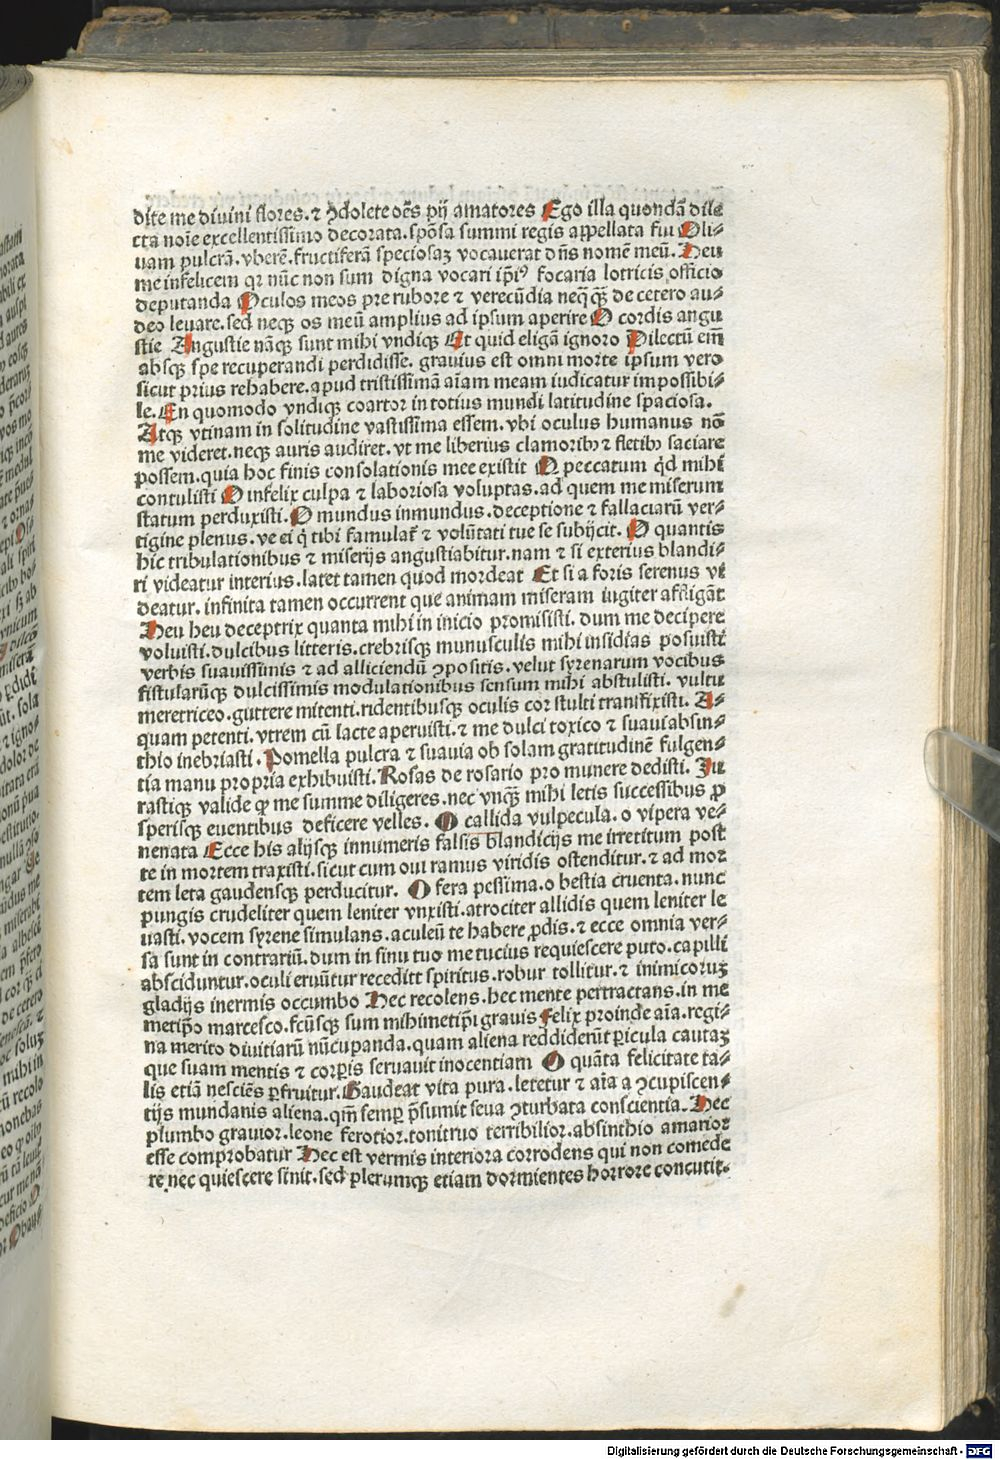 dite me divini flores.⁊ ꝯdolete oēs pij amatores Ego illa quondā dile
cta noīe excellentissimo decorata.spōsa summi regis appellata fui Oli-
uam pulcrā.vberē.fructiferā speciosaꝫ vocauerat dn̄s nomē meū.Heu
me infelicem qꝛ nūc non sum digna vocari ip̄iꝰ focaria lotricis officio
deputanda Oculos meos pre rubore ⁊ verecūdia neqꝫq̄ꝫ de cetero au-
deo leuare.sed neqꝫ os meū amplius ad ipsum aperire O cordis angu
stie Angustie nāqꝫ sunt mihi vndiqꝫ Et quid eligā ignoro Dilectū em̄
absqꝫ spe recuperandi perdidisse. grauius est omni morte ipsum vero
sicut prius rehabere.apud tristissimā aīam meam iudicatur impossibi-
le.En quomodo vndiqꝫ coartor in totius mundi latitudine spaciosa.
Atqꝫ vtinam in solitudine vastissima essem.vbi oculus humanus nō
me videret.neqꝫ auris audiret.vt me liberius clamoribꝫ ⁊ fletibꝫ saciare
possem.quia hoc finis consolationis mee existit O peccatum qͥd mihi
contulisti O infelix culpa ⁊ laboriosa voluptas.ad quem me miserum
statum perduxisti.O mundus inmundus.deceptione ⁊ fallaciarū ver-
tigine plenus.ve ei q̇ tibi famulat̄ ⁊ volūtati tue se subijcit. O quantis
hic tribulationibus ⁊ miserijs angustiabitur.nam ⁊ si exterius blandi-
ri videatur interius.latet tamen quod mordeat Et si a foris serenus vi
deatur.infinita tamen occurrent que animam miseram iugiter affligāt
Heu heu deceptrix quanta mihi in inicio promisisti.dum me decipere
voluisti.dulcibus litteris.crebrisqꝫ munusculis mihi insidias posuisti
verbis suauissimis ⁊ ad alliciendū ꝯpositis.velut syrenarum vocibus
fistularūqꝫ dulcissimis modulationibus sensum mihi abstulisti. vultu
meretriceo.guttere mitenti.ridentibusqꝫ oculis cor stulti transfixisti. A-
quam petenti.vtrem cū lacte aperuisti.⁊ me dulci toxico ⁊ suaui absin-
thio inebriasti.Pomella pulcra ⁊ suauia ob solam gratitudinē fulgen-
tia manu propria exhibuisti.Rosas de rosario pro munere dedisti. Iu
rastiqꝫ valide ꝙ me summe diligeres.nec vnq̄ꝫ mihi letis successibus ꝓ
sperisqꝫ euentibus deficere velles. O callida vulpecula.o vipera ve-
nenata Ecce his alijsqꝫ innumeris falsis blandicijs me irretitum post
te in mortem traxisti.sicut cum oui ramus viridis ostenditur.⁊ ad mor
tem leta gaudensqꝫ perducitur. O fera pessima.o bestia cruenta.nunc
pungis crudeliter quem leniter vnxisti.atrociter allidis quem leniter le
uasti.vocem syrene simulans.aculeū te habere ꝓdis.⁊ ecce omnia ver-
sa sunt in contrariū.dum in sinu tuo me tucius requiescere puto.capilli
absciduntur.oculi eruūtur receditt spiritus.robur tollitur.⁊ inimicoruꝫ
gladijs inermis occumbo Hec recolens.hec mente pertractans.in me
metip̄o marcesco.fc̄usqꝫ sum mihimetip̄i grauis Felix proinde aīa.regi-
na merito diuitiarū nūcupanda.quam aliena reddiderūt ꝑicula cautaꝫ
que suam mentis ⁊ corꝑis seruauit inocentiam O quāta felicitate ta-
lis etiā nesciēs ꝑfruitur.Gaudeat vita pura.letetur ⁊ aīa a ꝯcupiscen-
tijs mundanis aliena.qm̄ semꝑ p̄sumit seua ꝯturbata conscientia.Hec
plumbo grauior.leone ferotior.tonitruo terribilior.absinthio amarior
esse comprobatur Hec est vermis interiora corrodens qui non comede
re nec quiescere sinit.sed plerumqꝫ etiam dormientes horrore concutit.
Digitalisierung gefördert durch die Deutsche Forschungsgemeinschaft - DFG